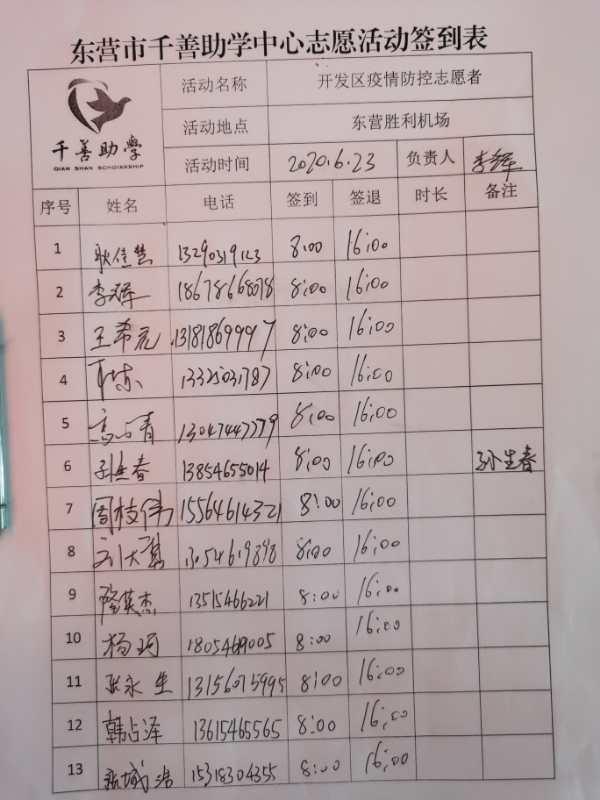 东营市千善助学中心志愿活动签到表
千善助学
QIAN SHAN SCHOLARSHIP
活动名称 开发区疫情防控志愿者
活动地点 东营胜利机场
活动时间 2020.6.23 负责人 李辉
序号 姓名 电话 签到 签退 时长 备注
1 耿佳慧 8:00 16:00
2 李辉 18678668078 8:00 16:00
3 王希元 13181869997 8:00 16:00
4 8:00 16:00
5 高占青 13047447779 8:00 16:00
6 孙生春 13854655014 8:00 16:00 孙生春
7 周枝伟 15564614321 8:00 16:00
8 8:00 16:00
9 英杰 13515466221 8:00 16:00
10 杨珂 8:00 16:00
11 张永生 13156075995 8:00 16:00
12 韩占泽 13615465565 8:00 16:00
13 15318304355 8:00 16:00